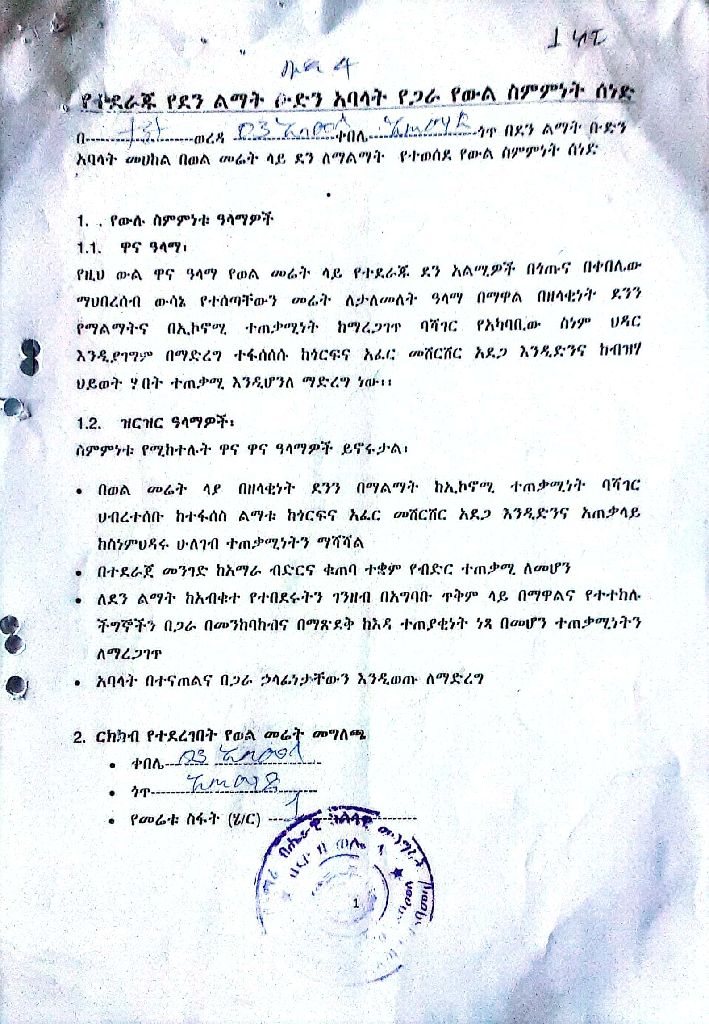 1
የተደራጁ የደን ልማት ቡድን አባላት የጋራ የውል ስምምነት ሰነድ
በ--------------ወረዳ 03 --------------ቀበሌ--------------ጎጥ በደን ልማት ቡድን
አባላት መሀከል በወል መሬት ላይ ደን ለማልማት የተወሰደ የውል ስምምነት ሰነድ
1. . የውሉ ስምምነቱ ዓላማዎች
1.1. ዋና ዓላማ፡
የዚህ ውል ዋና ዓላማ የወል መሬት ላይ የተደራጁ ደን አልሚዎች በጎጡና በቀበሌው
ማህበረሰብ ውሳኔ የተሰጣቸውን መሬት ለታለመለት ዓላማ በማዋል በዘላቂነት ደንን
የማልማትና በኢኮኖሚ ተጠቃሚነት ከማረጋገጥ ባሻገር የአካባቢው ስነም ህዳር
እንዲያገግም በማድረግ ተፋሰሰሱ ከጎርፍና አፈር መሸርሸር አደጋ እንዲድንና ከብዝሃ
ህይወት ሃብት ተጠቃሚ እንዲሆንለ ማድረግ ነው፡፡
1.2. ዝርዝር ዓላማዎች፡
ስምምነቱ የሚከተሉት ዋና ዋና ዓላማዎች ይኖሩታል፡
• በወል መሬት ላያ በዘላቂነት ደንን በማልማት ከኢኮኖሚ ተጠቃሚነት ባሻገር
ህብረተሰቡ ከተፋሰስ ልማቱ ከጎርፍና አፈር መሸርሸር አደጋ እንዲድንና አጠቃላይ
ከስነምህዳሩ ሁለገብ ተጠቃሚነትን ማሻሻል
• በተደራጀ መንግድ ከአማራ ብድርና ቁጠባ ተቋም የብድር ተጠቃሚ ለመሆን
• ለደን ልማት ከአብቁተ የተበደሩትን ገንዘብ በአግባቡ ጥቅም ላይ በማዋልና የተተከሉ
ችግኞችን በጋራ በመንከባከብና በማጽደቅ ከእዳ ተጠያቂነት ነጻ በመሆን ተጠቃሚነትን
ለማረጋገጥ
• አባላት በተናጠልና በጋራ ኃላፊነታቸውን እንዲወጡ ለማድረግ
2. ርክክብ የተደረገበት የወል መሬት መግለጫ
• ቀበሌ 03 --------------
• ጎጥ--------------
• የመሬቱ ስፋት (ሄ/ር) ---1--------------
1